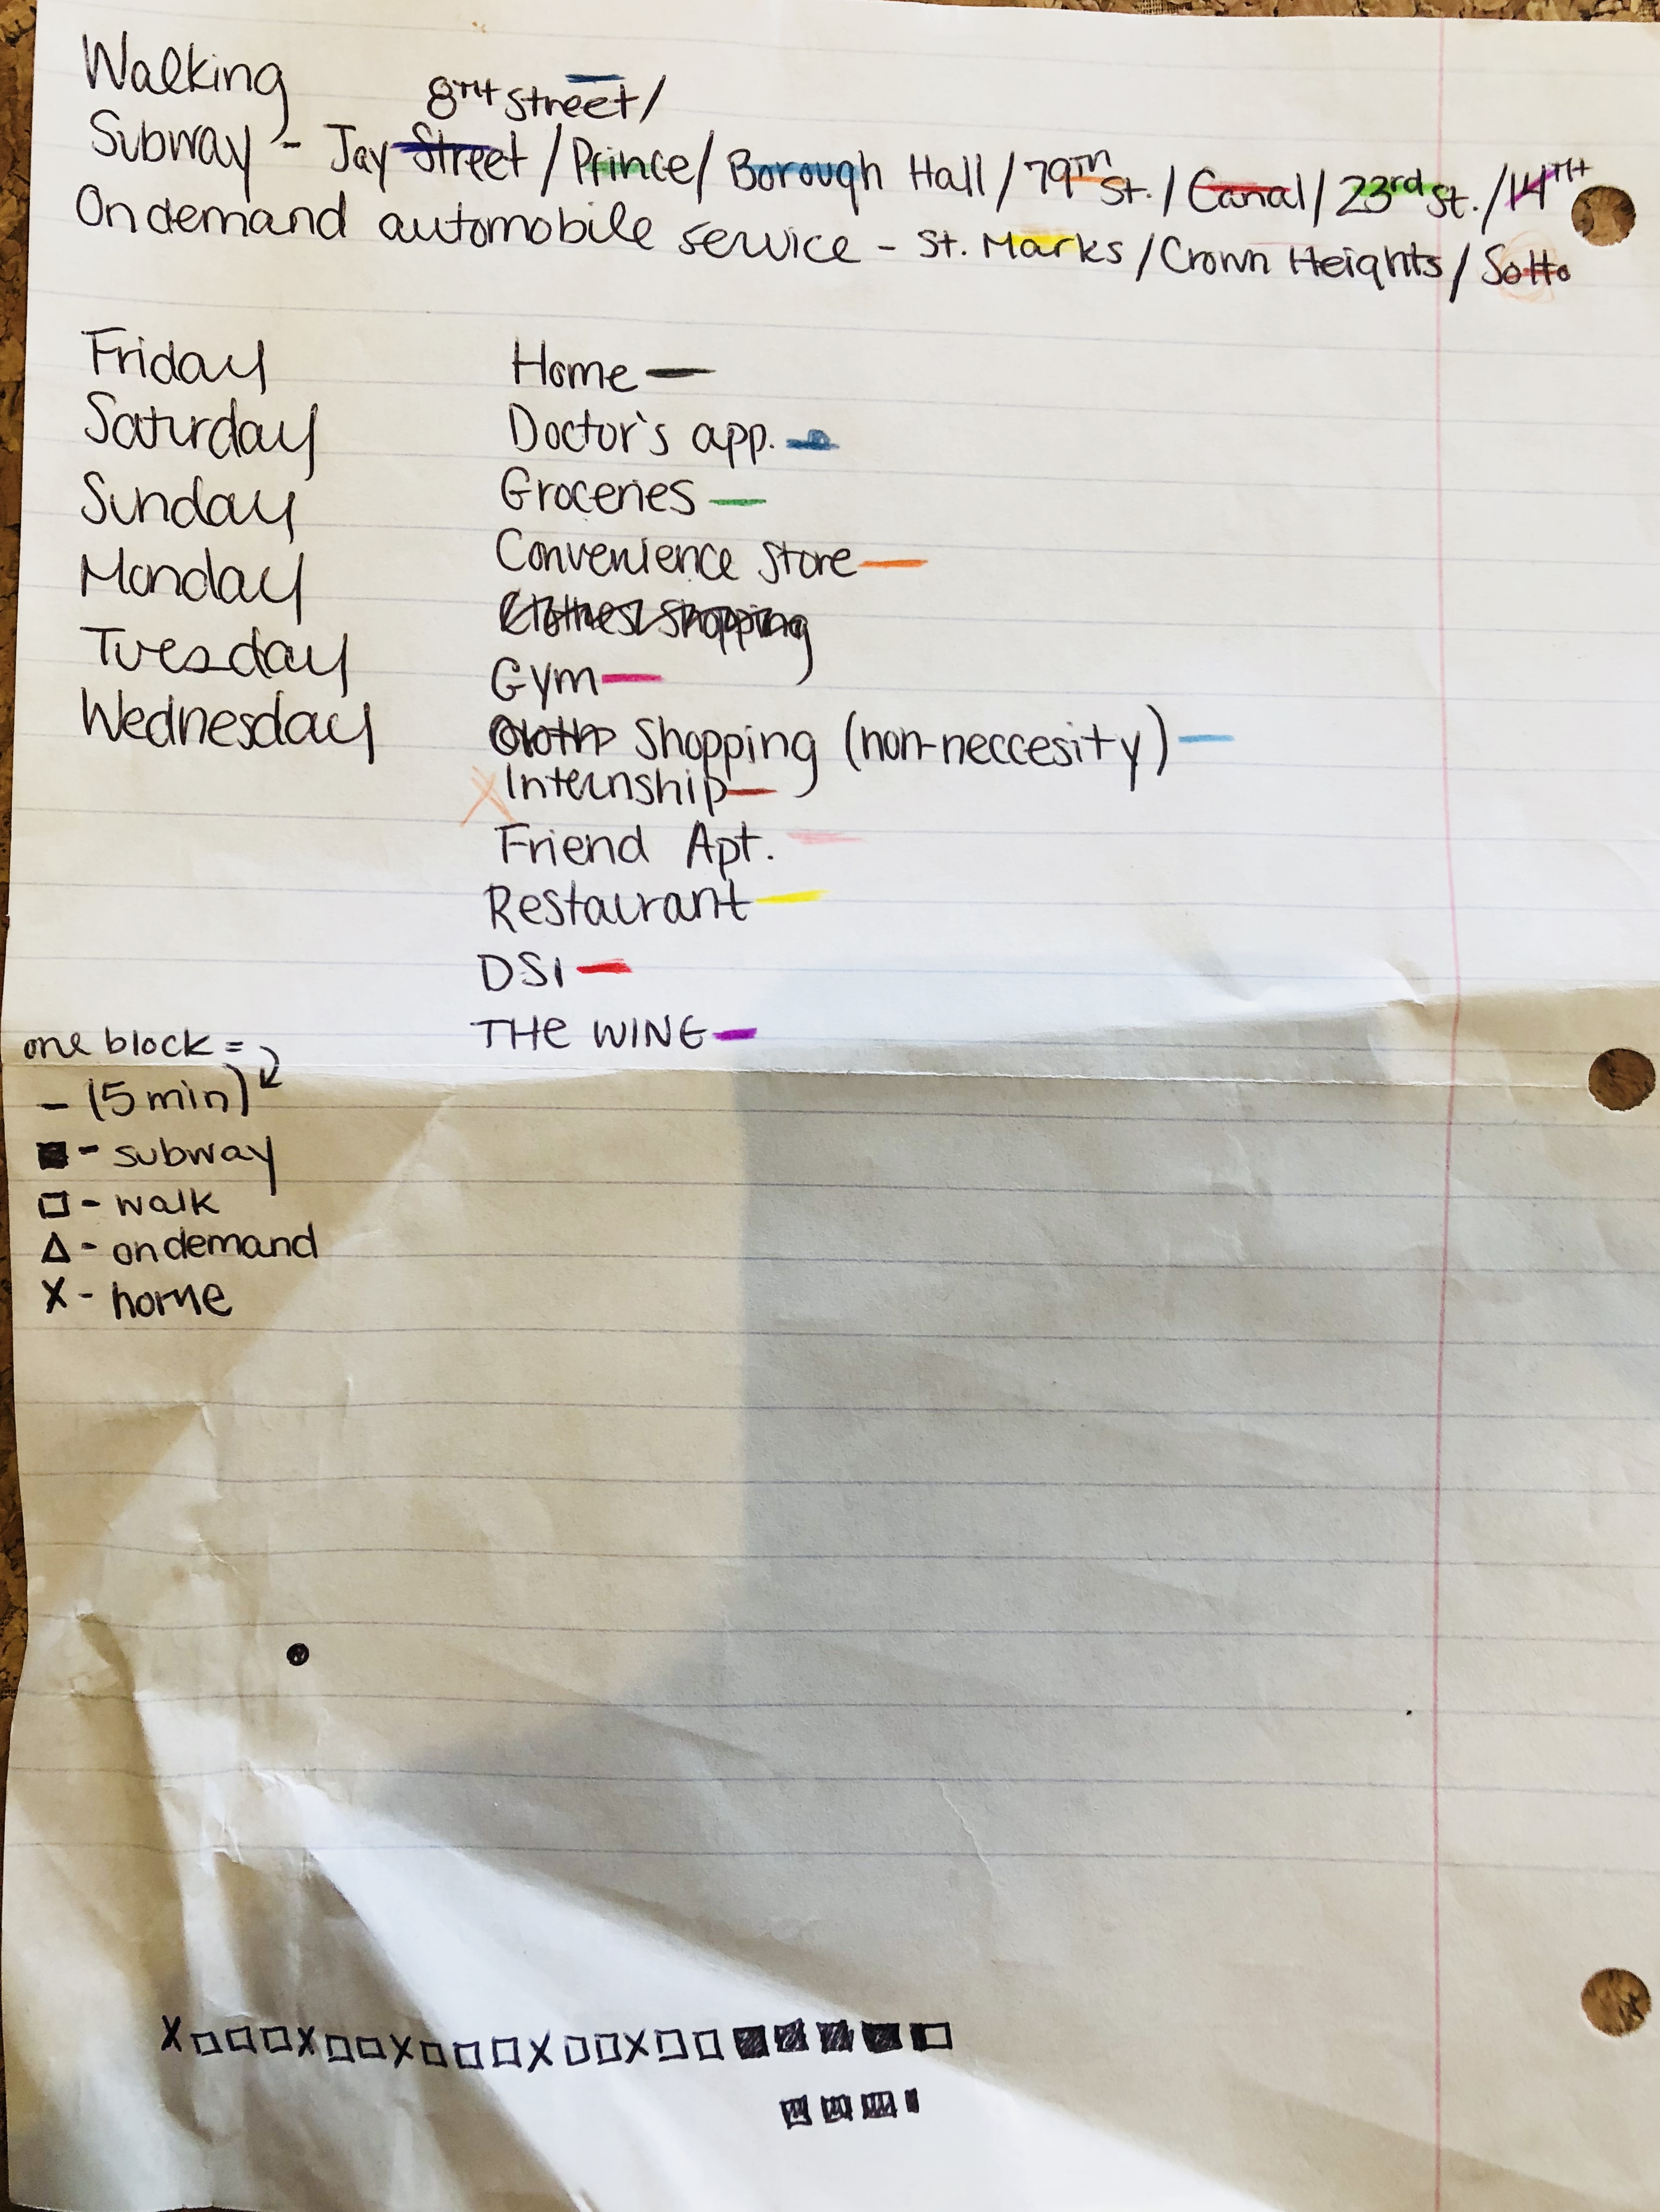 Walking
8TH Street/
Subway - Jay Street / Prince / Borough Hall / 79TH St. / Canal / 23rd St. / 14TH
On demand automobile service - St. Marks / Crown Heights / Sotto
Friday
Saturday
Sunday
Monday
Tuesday
Wednesday
Home
Doctor's app.
Groceries
Convenience Store
Clothes Shopping
Gym
Shopping (non-neccesity)
X Internship
Friend Apt.
Restaurant
DSI
THE WING
one block =
- (5 min)
■ - subway
□ - walk
△ - on demand
X - home
X□□□X□□X□□□X□□X□□■■■■□